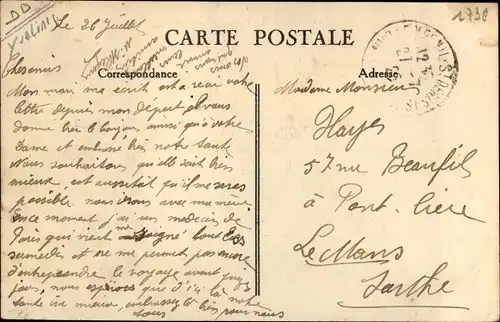 1730
DD
Yvelines
Le 26 Juillet
CARTE POSTALE
Correspondance
Adresse
Chers amis
Mon mari m'a écrit et a reçu votre
lettre depuis mon départ et vous
donne bien le bonjour ainsi qu'à votre
dame et embrasse bien notre tante
Nous souhaitons qu'elle soit bien
mieux et aussitôt qu'il me sera
possible nous irons avec ma mère
en ce moment j'ai un médecin de
Paris qui vient me soigné tous les
samedis et ne me permet pas encore
d'entreprendre le voyage avant quinze
jours, nous espérons que d'ici là notre
tante ira mieux, embrassez la bien pour nous
tous
Madame Monsieur
Hayes
57 rue Beaufils
à Pont-lieue
Le Mans
Sarthe